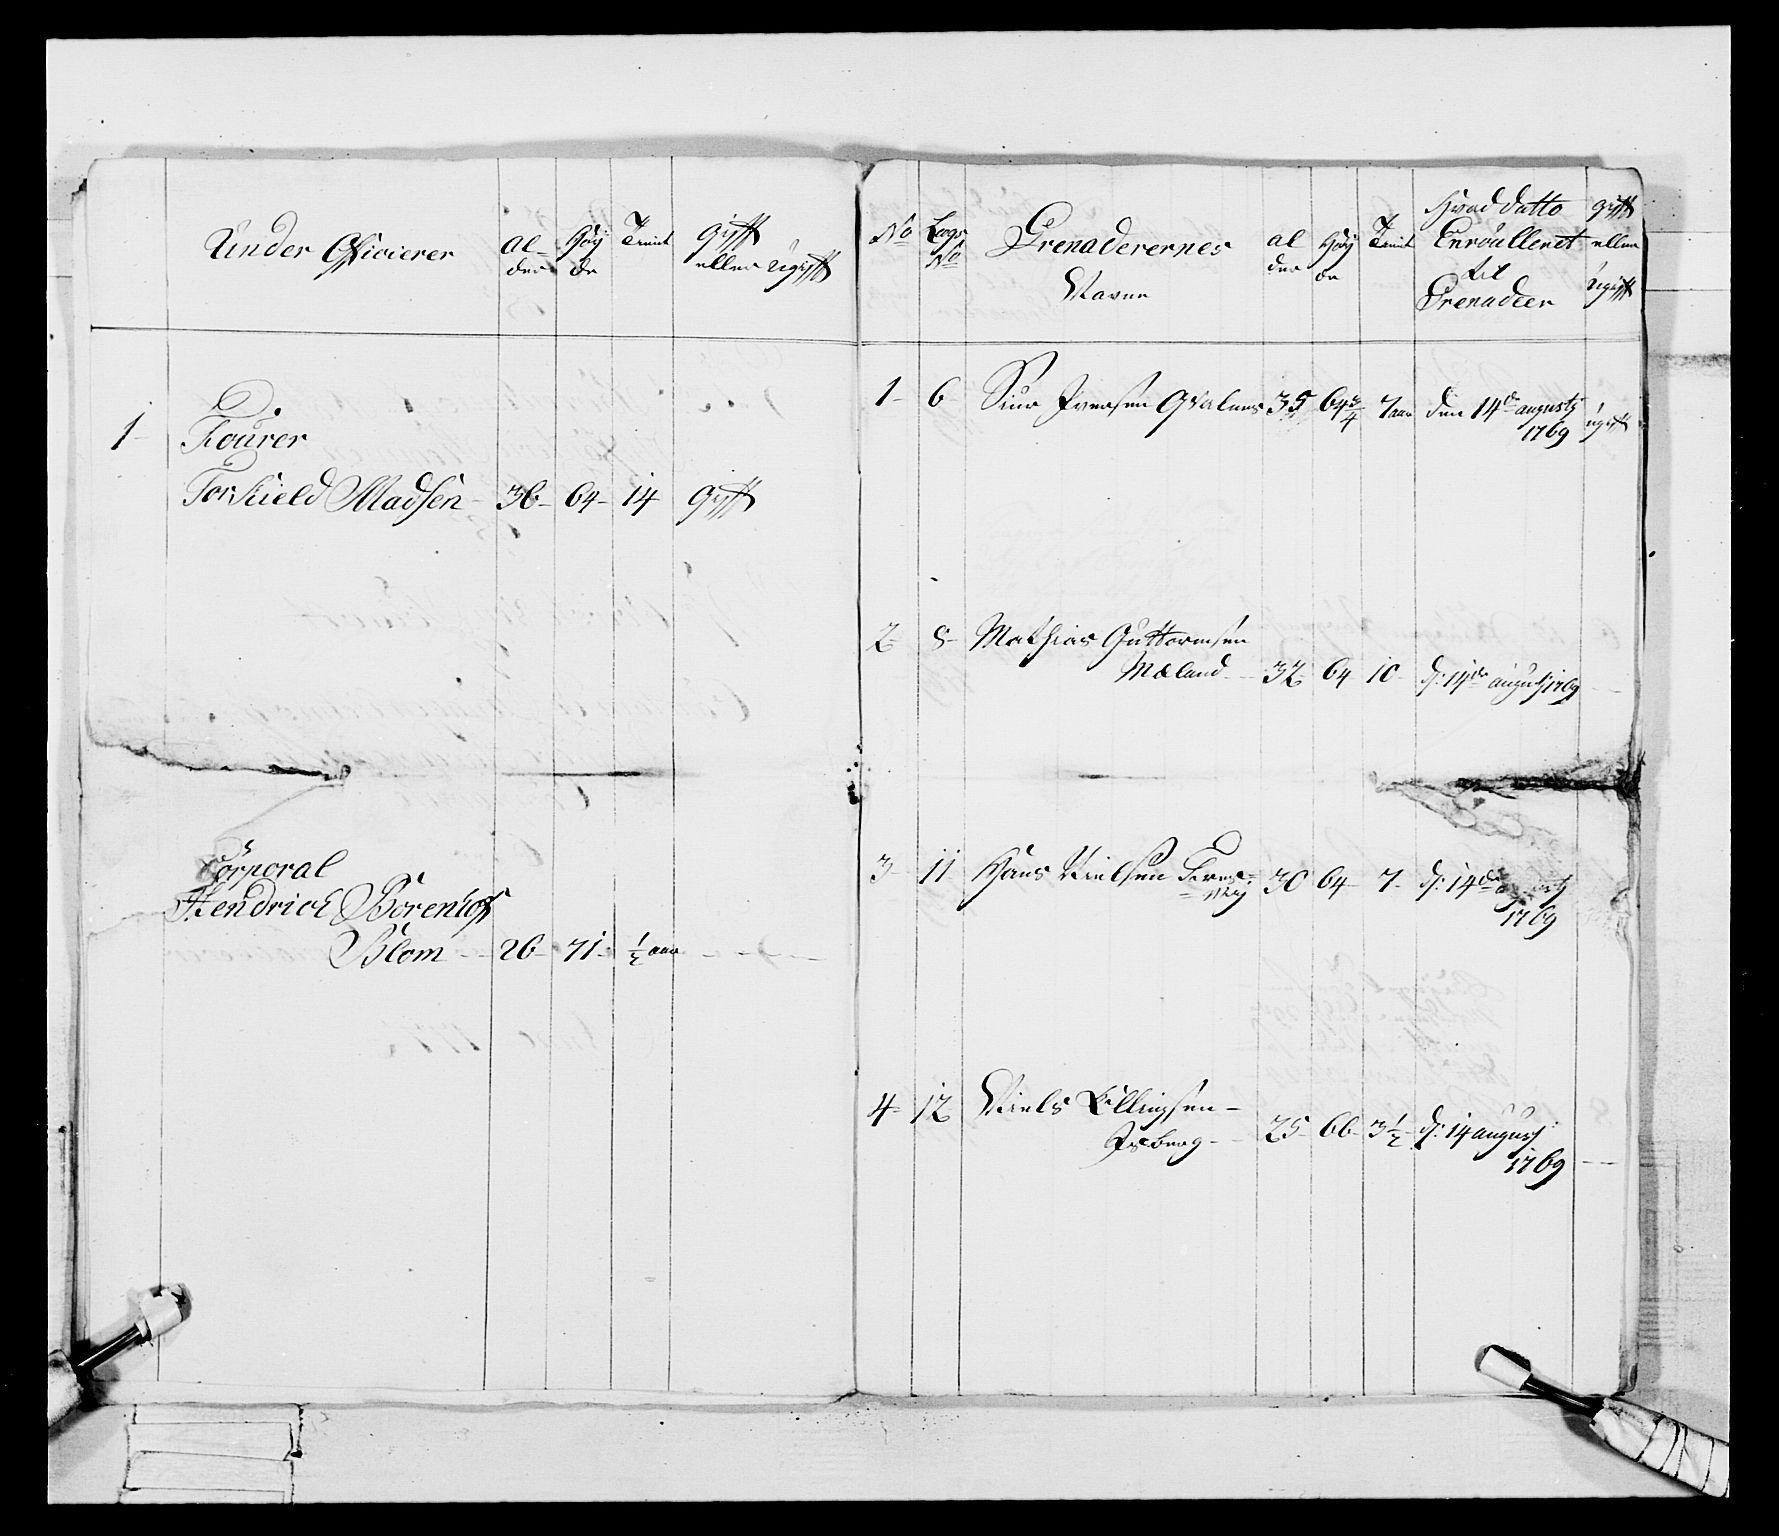 Under Officierer
al-
der
Höy
de
Tient
gifft
eller ugifft
1
Fourer
Torkield Madsen 36 64 14 gifft
Corporal
Hendrich Borenhof
Blom 26 71 1/2 aar
No
Laegs
No
Grenaderernes
Navne
al
der
Höy
de
Tient
Hvad datto
Enroulleret
til
Grenadeer
gifft
eller
ugifft
1 6 Siur Iversen Qvalnes 35 64 3/4 7 aar den 14de augusty
1769
ugifft
2 8 Mathias Guttormsen
Mæland 32 64 10 d: 14de august 1769
3 11 Hans Nielsen 30 64 7 d: 14de
1769
4 12 Niels Ellingsen
Isberg 25 66 3 1/2 d: 14 august
1769